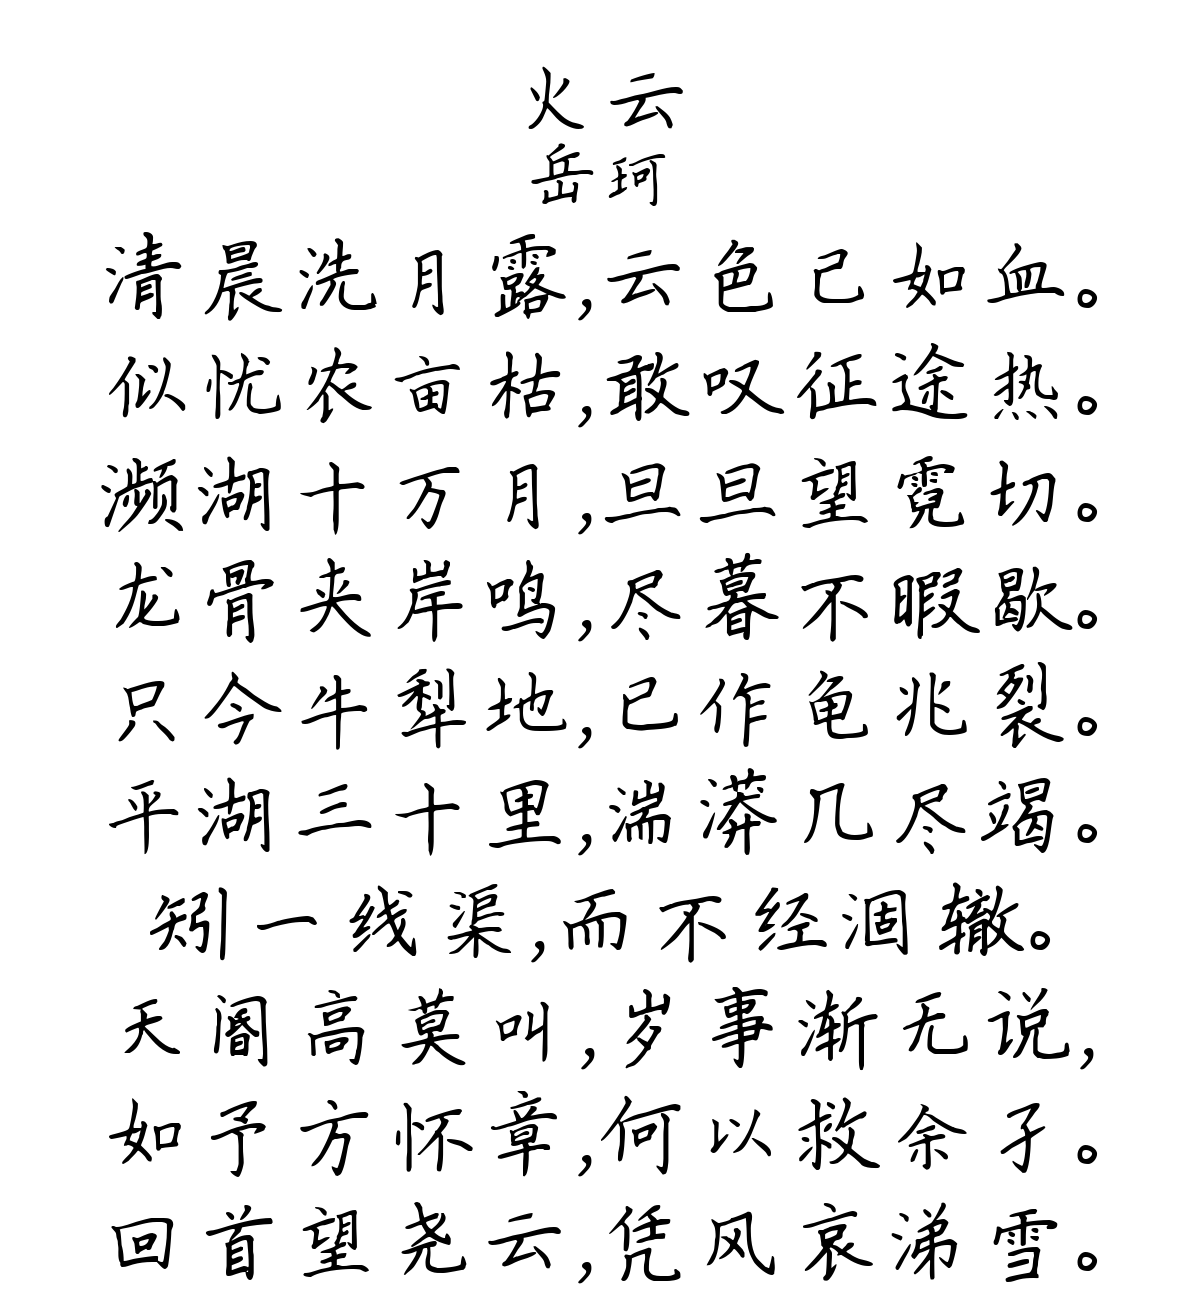 火云
岳珂
清晨洗月露,云色已如血。
似忧农亩枯,敢叹征途热。
濒湖十万月,旦旦望霓切。
龙骨夹岸鸣,尽暮不暇歇。
只今牛犁地,已作龟兆裂。
平湖三十里,湍漭几尽竭。
矧一线渠,而不经涸辙。
天阍高莫叫,岁事渐无说,
如予方怀章,何以救余孑。
回首望尧云,凭风哀涕雪。